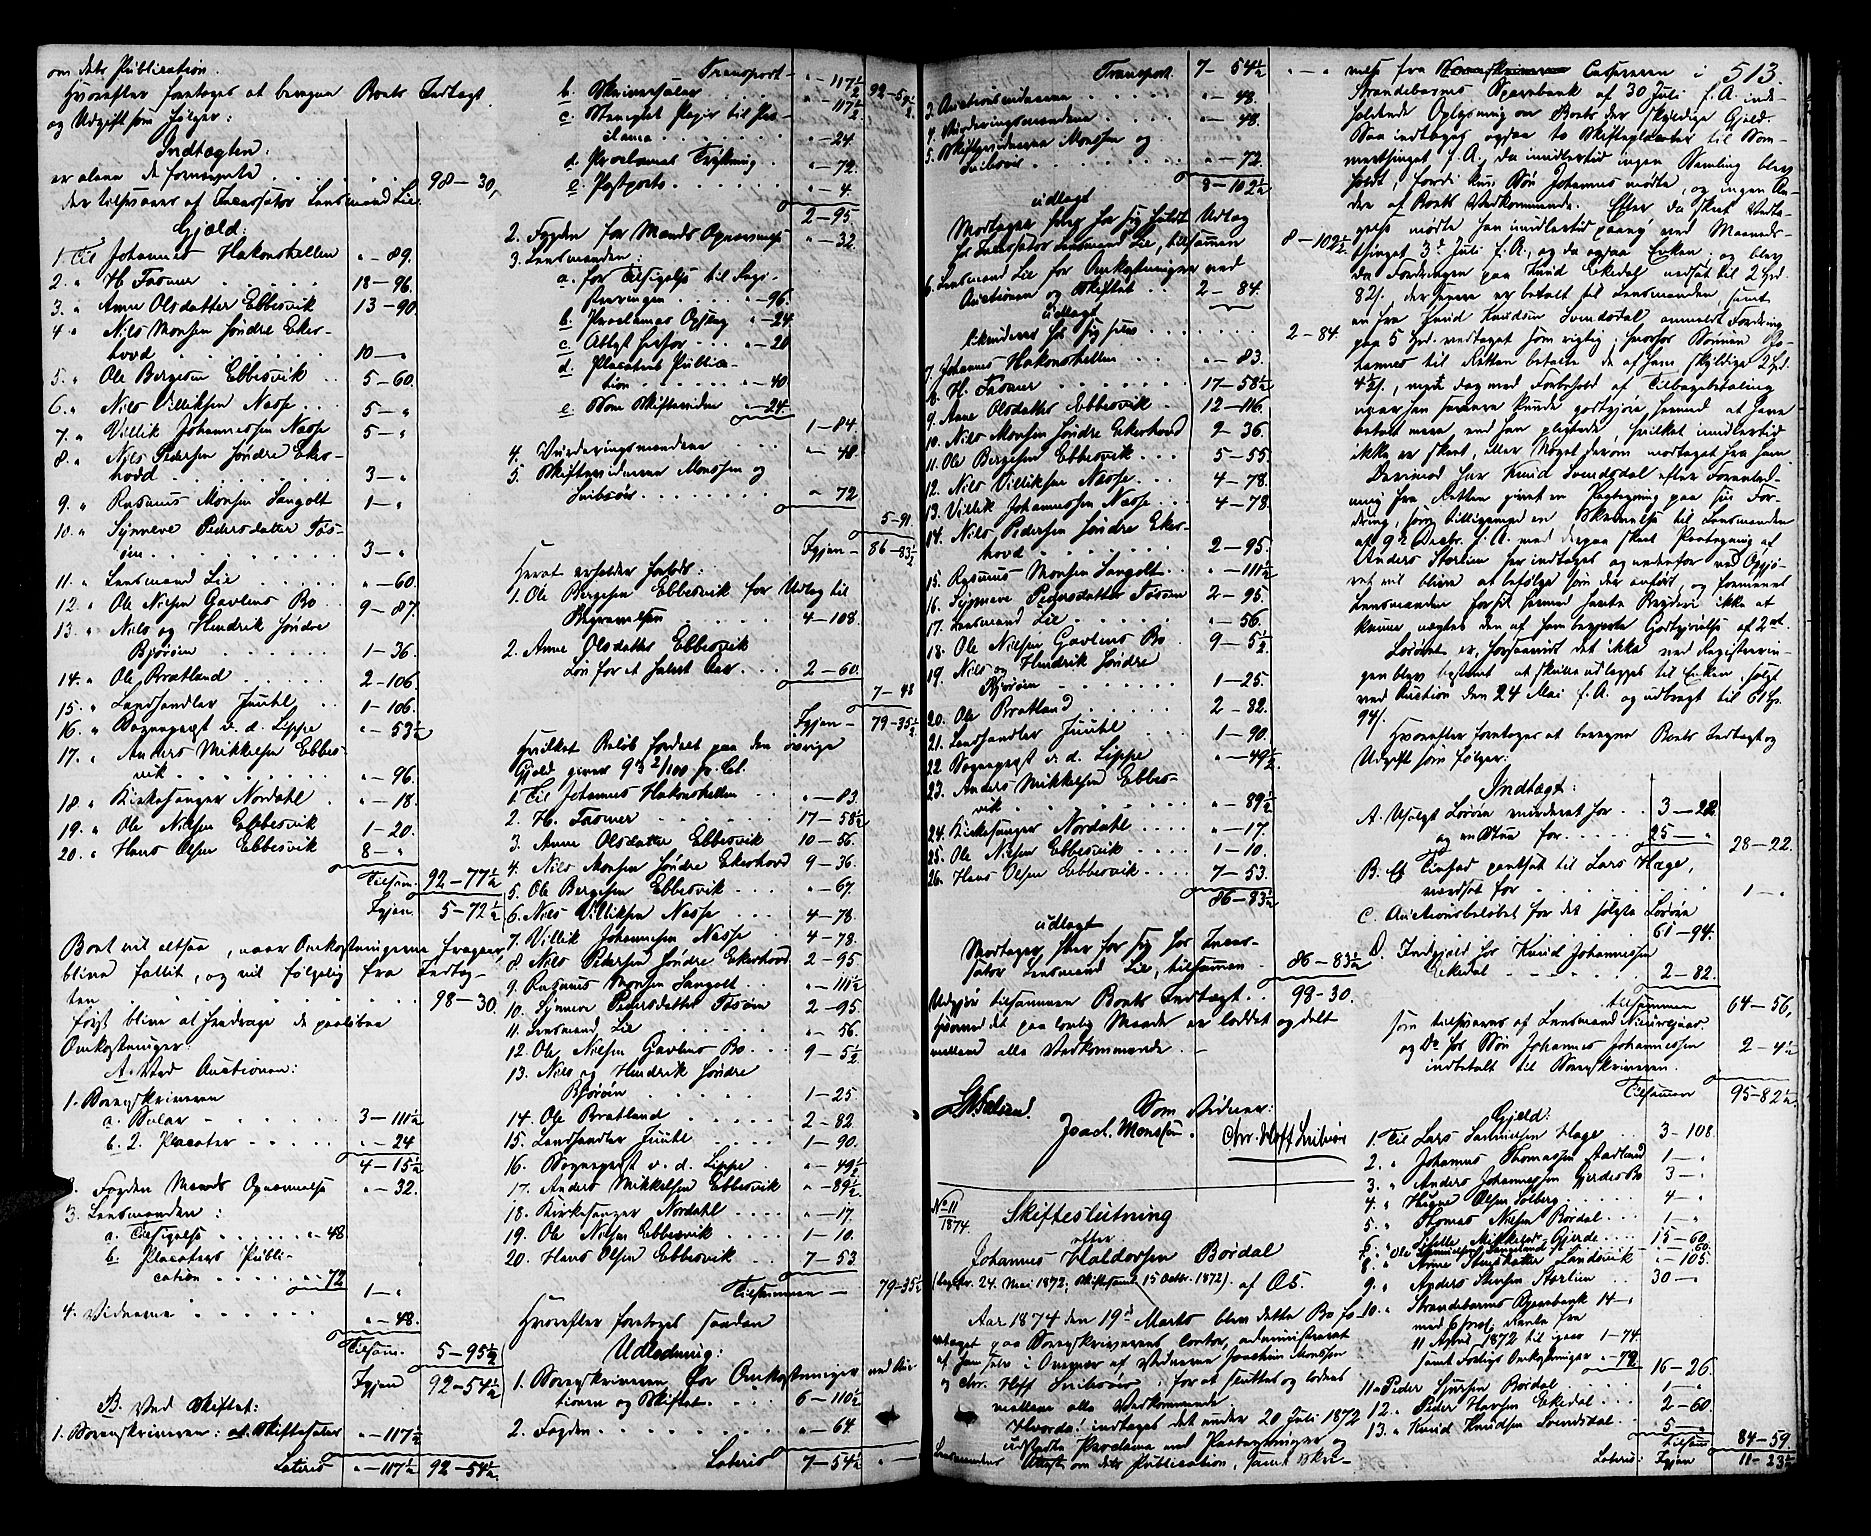 om dets Publication.
Hvorefter foretoges at beregne Boets Indtægt
og Udgift som følger:
Indtægten:
er alene de fornævnte 98 – 30,
der tilsvares af Incassator Lensmand Lie.
Gjæld:
1. Til Johannes Hakonshellen " – 89.
2. " H. Fasmer 18 – 96.
3. " Anne Olsdatter Ebbesvik 13 – 90
4. " Nils Monsen søndre Eker-
hovd 10 – "
5. " Ole Bergesen Ebbesvik 5 – 60.
6. " Nils Villiksen Næsse 5 – "
7. " Villik Johannessen Næsse 5 – "
8. " Nils Pedersen søndre Eker-
hovd 3 – "
9. " Rasmus Monsen Sangolt 1 – "
10. " Synneve Pedersdatter Tøs-
øen 3 – "
11. " Lensmand Lie " – 60.
12. " Ole Nielsen Gavlens Bo 9 – 87.
13. " Nils og Hendrik søndre
Bjorøen 1 – 36.
14. " Ole Bratland 2 – 106.
15. " Landhandler Juuhl 1 – 106.
16. " Sognepræst v. d. Lippe " – 53½
17. " Anders Mikkelsen Ebbes-
vik " – 96.
18. " Kirkesanger Nordahl " – 18.
19. " Ole Nielsen Ebbesvik 1 – 20.
20. " Hans Olsen Ebbesvik 8 – "
Tilsam. 92 – 77½
Igjen. 5 – 72½
Boet vil altsaa, naar Omkostningerne fragaaer,
blive fallit, og vil følgelig fra Indtæg-
ten 98 – 30.
først blive at fradrage de paaløbne
Omkostninger:
A. Ved Auctionen:
1. Sorenskriveren
a. Salær 3 – 111½
b. 2. Placater " – 24
4 – 15½
2. Fogden Mænds Opnævnelse " – 32.
3. Lensmanden:
a. Tilsigelse " – 48
b. Placaters Publi-
cation " – 72
1 – "
4. Vidnerne " – 48.
Tilsam. 5 – 95½
Igjen 92 – 54½
B. Ved Skiftet:
1. Sorenskriveren: a. Skiftesalær " – 117½
Lateris " – 117½ 92 – 54½
Transport " – 117½ 92 – 54½
b. Skriversalær " – 117½
c. Stemplet Papir til Pro-
clama " – 24
d. Proclamas Trykning " – 72.
e. Postporto " – 4.
2 – 95
2. Fogden for Mænds Opnævnelse " – 32.
3. Lensmanden:
a. for Tilsigelse til Regi-
streringen " – 96.
b. Proclamas Opslag " – 24
c. Attest herfor " – 20
d. Placaters Publica-
tion " – 40.
e. Som Skiftevidne " – 24
1 – 84.
4. Vurderingsmændene " – 48
5. Skiftevidnerne Monssen og
Sviboür " 72
5 – 91.
Igjen – 86 – 83½
Heraf erholder forlods:
1. Ole Bergesen Ebbesvik for Udlæg til
Begravelsen 4 – 108.
2. Anne Olsdatter Ebbesvik
Løn for et halvt Aar 2 – 60.
7 – 48
Igjen – 79 – 35½
Hvilket Beløb fordelt paa den øvrige
Gjæld giver 93 2/100 pr. Ct.
1. Til Johannes Hakonshellen " – 83.
2. H. Fasmer 17 – 58½
3. Anne Olsdatter Ebbesvik 10 – 56.
4. Nils Monsen søndre Ekerhovd 9 – 36.
5. Ole Bergesen Ebbesvik " – 67.
6. Nils Villiksen Næsse 4 – 78.
7. Villik Johannesen Næsse 4 – 78.
8. Nils Pedersen søndre Ekerhovd 2 – 95
9. Rasmus Monsen Sangolt " – 111½
10. Synneve Pedersdatter Tøsøen 2 – 95.
11. Lensmand Lie " – 56.
12. Ole Nielsen Gavlens Bo 9 – 5½
13. Nils og Hendrik søndre
Bjorøen 1 – 25
14. Ole Bratland 2 – 82.
15. Landhandler Juuhl 1 – 90.
16. Sognepræst v. d. Lippe " – 49½
17. Anders Mikkelsen Ebbesvik " – 89½
18. Kirkesanger Nordahl " – 17.
19. Ole Nielsen Ebbesvik 1 – 10.
20. Hans Olsen Ebbesvik 7 – 53
Tilsammen – 79 – 35½
Hvorefter foretoges saadan
Udlodning:
1. Sorenskriveren for Omkostninger ved Auc-
tionen og Skiftet 6 – 110½
2. Fogden " – 64.
Lateris 7 – 54½ " – "
Transport. 7 – 54½ " – "
3. Auctionsvidnerne " – 48.
4. Vurderingsmændene " – 48.
5. Skiftevidnerne Monssen og
Sviboür " – 72
8 – 102½
udlagt
Modtager hver for sig hvert Udlæg
hos Incassator Lensmand Lie, tilsammen 8 – 102½
6. Lensmand Lie for Omkostninger ved
Auctionen og Skiftet 2 – 84.
udlagt
likvideres hos sig selv 2 – 84.
7. Johannes Hakonshellen " – 83.
8. H. Fasmer 17 – 58½
9. Anne Olsdatter Ebbesvik 12 – 116.
10. Nils Monsen søndre Ekerhovd 9 – 36.
11. Ole Bergesen Ebbesvik 5 – 55
12. Nils Villiksen Næsse 4 – 78.
13. Villik Johannessen Næsse 4 – 78.
14. Nils Pedersen søndre Eker-
hovd 2 – 95.
15. Rasmus Monsen Sangolt " – 111½
16. Synneve Pedersdatter Tøsøen 2 – 95
17. Lensmand Lie " – 56.
18. Ole Nielsen Gavlens Bo 9 – 5½
19. Nils og Hendrik søndre
Bjorøen 1 – 25.
20. Ole Bratland 2 – 82.
21. Landhandler Juuhl 1 – 90.
22. Sognepræst v. d. Lippe " – 49½
23. Anders Mikkelsen Ebbes-
vik " – 89½
24. Kirkesanger Nordahl " – 17.
25. Ole Nielsen Ebbesvik 1 – 10.
26. Hans Olsen Ebbesvik 7 – 53.
86 – 83½
udlagt
Modtages hver for sig hos Incas-
sator Lensmand Lie, tilsammen 86 – 83½
Udgjør tilsammen Boets Indtægt 98 – 30.
Hvormed det paa lovlig Maade er loddet og delt
mellem alle Vedkommende. –
Som Vidner:
Joach. Monssen. Chr. Hoff Sviboür
No 11
1874.
Skifteslutning
efter
Johannes Haldorsen Bøidal
(Registr. 24. Mai 1872; Skiftesaml. 15 Octbr. 1872). af Os.
Aar 1874 den 19de Marts blev dette Bo fo-
retaget paa Sorenskriverens Contor, administreret
af ham selv i Overvær af Vidnerne Joachim Monssen
og Chr. Hoff Sviboür; for at sluttes og loddes
mellem alle Vedkommende.
Hvorda: indtoges det under 20 Juli 1872
udstedte Proclama med Paategninger og
Lensmandens Attest om dets Publication, samt Skri-
velse fra Sorenskriveren Casereren i 513.
Strandebarms Sparebank af 30 Juli f. A. inde-
holdende Oplysning om Boets der skyldige Gjæld.
Saa indtoges ogsaa to Skifteplacater til Som-
mertinget f. A., da imidlertid ingen Samling blev
holdt, fordi kun Søn Johannes mødte, og ingen An-
dre af Boets Vedkommende. Efter da skeet Vedta-
gelse mødte han imidlertid paany ved Maaneds-
thinget 3de Juli f. A., og da ogsaa Enken, og blev
da Fordringen paa Knud Ekedal nedsat til 2 Spd.
82 s., der senere er betalt til Lensmanden, samt
en fra Knud Knudsen Svendsdal anmeldt Fordring
paa 5 Spd. vedtaget som rigtig; hvorhos Sønnen Jo-
hannes til Retten betalte de af ham skyldige 2 Spd.
4½ s., mod dog med Forbehold af Tilbagebetaling
naar han senere kunde godtgjøre hermed at have
betalt mere, end han pligtede, hvilket imidlertid
ikke er skeet, eller Noget derom modtaget fra ham.
Derimod har Knud Svendsdal efter Foranled-
ning fra Retten givet en Paategning paa sin For-
dring, som tilligemed en Skrivelse til Lensmanden
af 9de Decbr. f. A. med derpaa skeet Paategning af
Anders Storlien her indtoges og
vil blive at befølge som der anført, og formenes
Lensmanden for sit hermed havte Bryderi ikke at
kunne nægtes den af ham begjærte Godtgjørelse af 2 ort.
Løsøret er, forsaavidt det ikke ved Registerin-
gen blev bestemt at skulle udlægges til Enken, solgt
ved Auction den 24 Mai f. A. og udbragt til 61 Sp.
94 s.
Hvorefter foretoges at beregne Boets Indtægt og
Udgift som følger:
Indtægt:
A. Usolgt Løsøre vurderet for 3 – 22
og en Stue for 25 – " 28 – 22.
B. Et pantsat til Lars Hæge,
værdsat for 1 – "
C. Auctionsbeløbet for det solgte Løsøre
61 – 94.
D. Indgjæld hos Knud Johannessen
Eikedal 2 – 82.
tilsammen 64 – 56,
som tilsvares af Lensmand
og Do. hos Søn Johannes Johannessen 2 – 4½
indbetalt til Sorenskriveren.
Tilsammen 95 – 82½.
Gjæld:
1. Til Lars Hæge 3 – 108.
2. " Johannes Thomassen Hadland 1 – "
3. " Anders Johannessen Gjerdes Bo 3 – "
4. " Haagen Olsen Solberg 4 – "
5. " Thomas Nielsen Bøidal 1 – "
6. " Mikkelsd. Gjerde 15 – 60.
7. " Ole " 60.
8. " Anne Landsvik " – 105.
9. " Anders Storlien 30 – "
10. " Strandebarms Sparebank 14 – "
med 6 prct. Rente fra
11 April 1872 til igaar 1 – 74.
samt Forligs Omkostninger " – 72
16 – 26.
11. " Peder Bøidal 1 – "
12. " Peder Hansen Ekedal 2 – 60.
13. " Knud Knudsen Svendsdal 5 – "
Tilsam. 84 – 59
Lateris: Igjen 11 – 23½